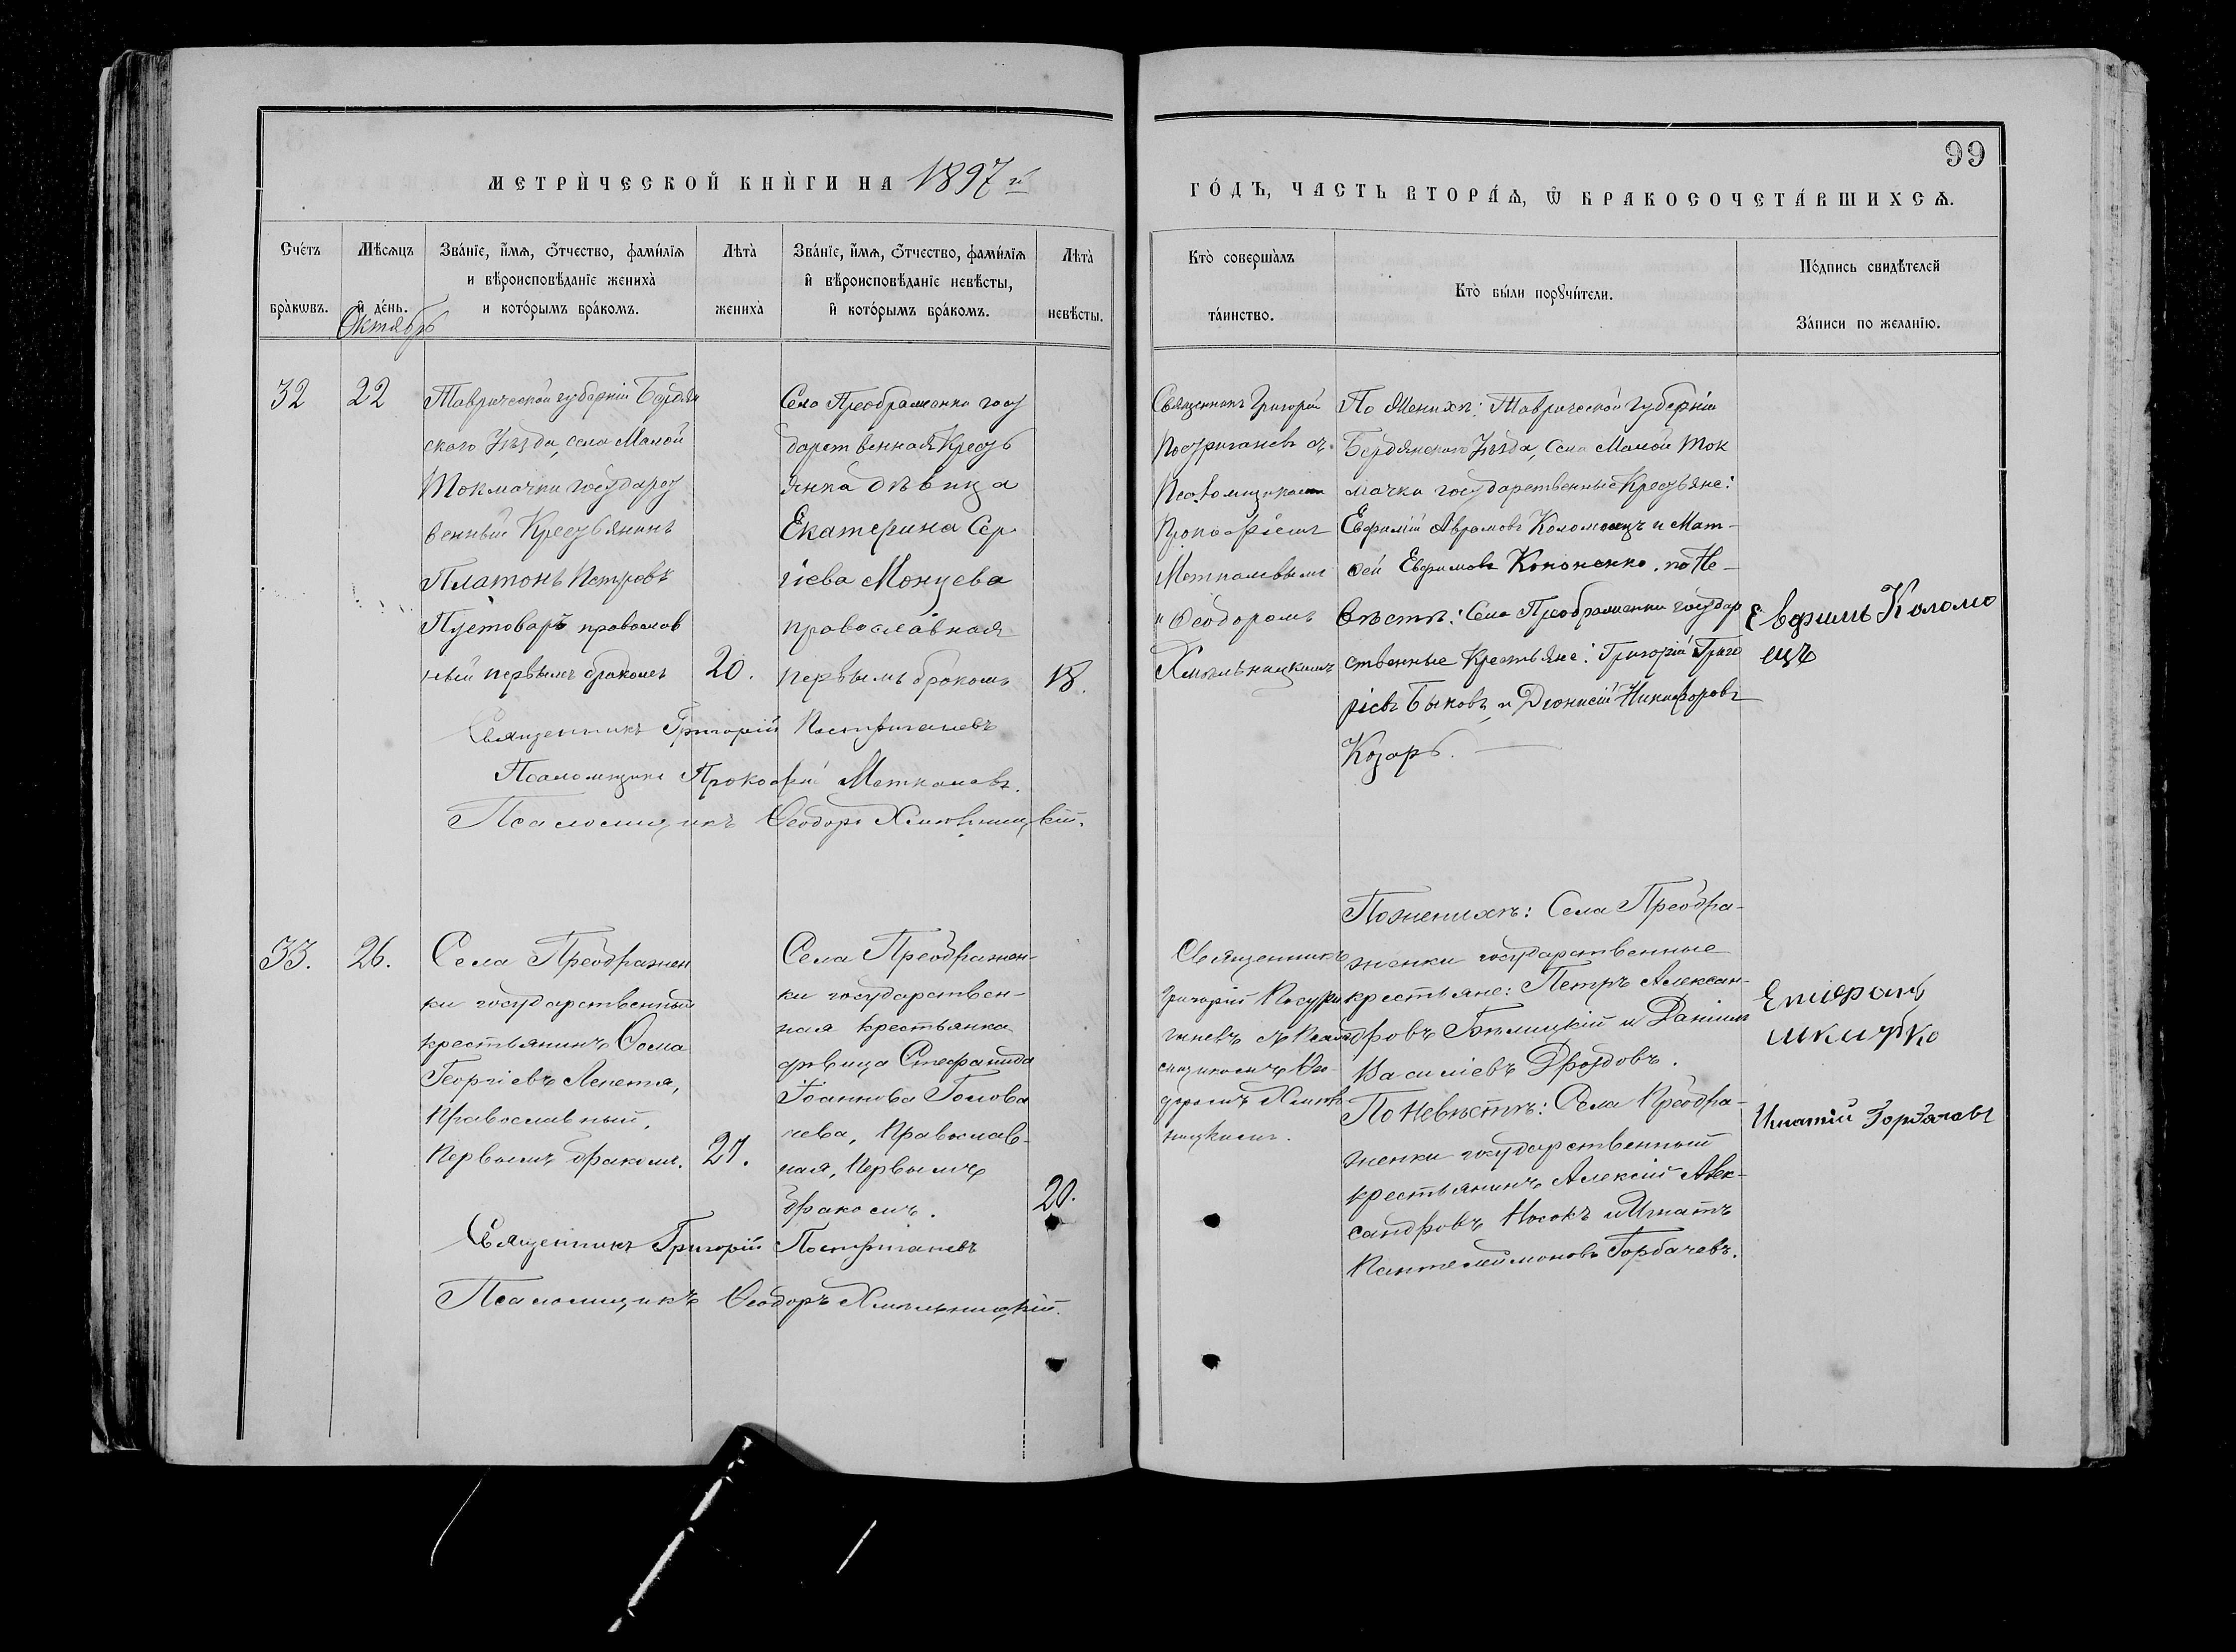 99
МЕТРИ́ЧЕСКОЙ КНИ́ГИ НА 1897 й
ГО́ДЪ, ЧАСТЬ ВТОРА́Ѧ, Ѿ БРАКОСОЧЕТА́ВШИХСѦ.
Сче́тъ бра́кѡвъ.
Мѣ́сѧцъ и҆ де́нь.
Октябрь
Зва́нїе, и҆́мѧ, ѻ҆́тчество, фами́лїѧ
и вѣроисповѣ́данїе жениха̀
и кото́рымъ бра́комъ.
Лѣта̀ жениха̀
Зва́нїе, и҆́мѧ, ѻ҆́тчество, фами́лїѧ
и҆ вѣроисповѣ́данїе невѣ́сты,
и҆ кото́рымъ бра́комъ.
Лѣта̀ невѣ́сты.
Кто̀ соверша́лъ
та́инство.
Кто̀ бы́ли порꙋчи́тели.
По́дпись свидѣ́телей
За́писи по жела́нїю.
32
22
Таврической губерніи Бердян
скаго Уѣзда, села Малой
Токмачки государст
венный Крестьянинъ
Платонъ Петровъ
Пустоваръ православ
ный первымъ бракомъ
20.
Села Преображенки госу
дарственная Кресть
янка дѣвица
Екатерина Сер
гіева
православная
первымъ бракомъ
18.
Священникъ Григорій
Постригачевъ съ
Псаломщиками
Прокофіемъ
и Ѳеодоромъ
Хмѣльницкимъ
По Женихѣ: Таврической Губерніи
Бердянскаго Уѣзда, Села Малой Ток
мачки государственные Крестьяне:
Евфимій Аврамовъ Коломоецъ и Мат-
ѳей Евфимовъ Кононенко. по Не-
вѣстѣ: Села Преображенки государ
ственные Крестьяне: Григорій Григо
ріевъ Быковъ и Діонисій Никифоровъ
Козарь.
Евфимъ Коломо
ецъ
Священникъ Григорій Постригачевъ
Псаломщикъ Прокофій
Псаломщикъ Ѳеодоръ Хмѣльницкій.
33.
26.
Села Преображен
ки государственный
крестьянинъ Ѳома
Георгіевъ Лепетя,
Православный,
Первымъ бракомъ.
21.
Села Преображен-
ки государствен-
ная крестьянка
дѣвица Стефанида
Іоаннова Голова
чева, Православ-
ная, Первымъ
бракомъ.
20.
Священникъ
Григорій Постри
гачевъ съ Псало
мщикомъ Ѳео-
доромъ Хмѣль
ницкимъ.
По женихѣ: Села Преобра-
женки государственные
крестьяне: Петръ Алексан-
дровъ Бѣлицкій и Даніилъ
Василіевъ Дроздовъ.
По Невѣстѣ: Села Преобра-
женки государственный
крестьянинъ Алексій Алек-
сандровъ Носокъ и Игнатъ
Пантелеймоновъ Горбачевъ.
Игнатій Горбачовъ
Священникъ Григорій Постригачевъ
Псаломщикъ Ѳеодоръ Хмѣльницкій.